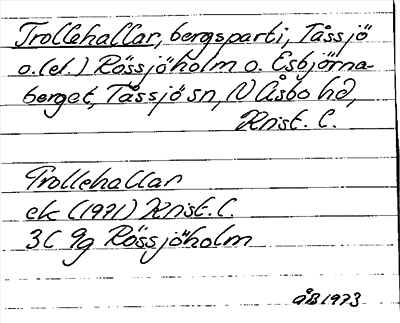 Trollehallar, bergsparti, Tåssjö
o. (el.) Rössjöholm o. Esbjörna-
berget, Tåssjö sn, N Åsbo hd,
Krist. l.
Trollehallar
ek (1971) Krist. l.
3C 9g Rössjöholm
ÅB 1973